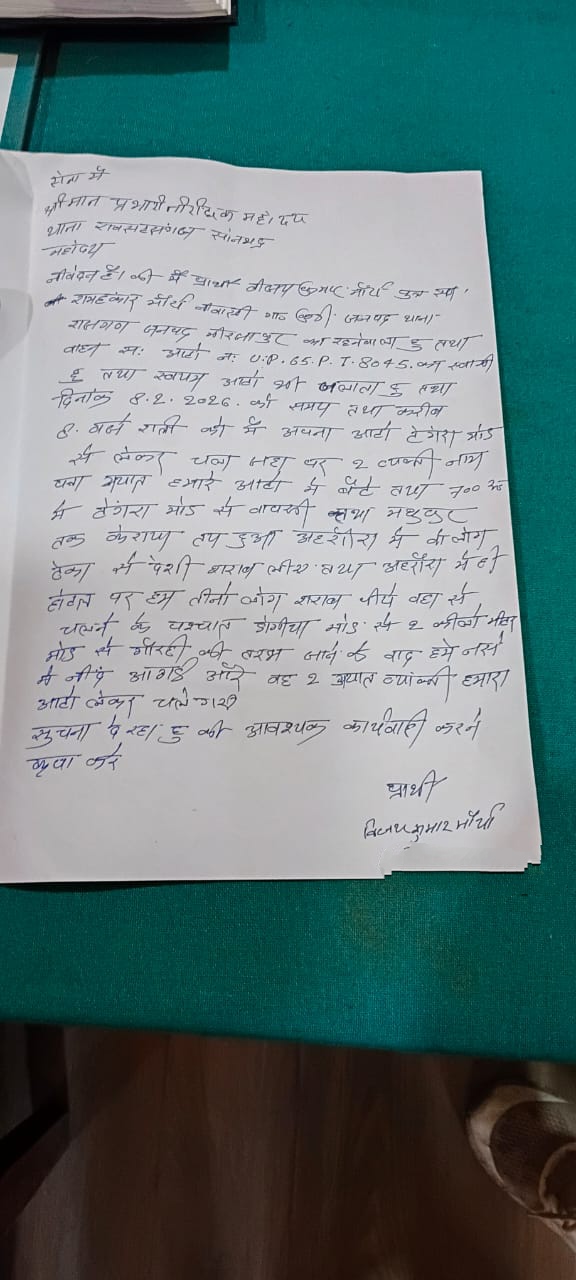 सेवा में
श्रीमान प्रभारी निरीक्षक महोदय
थाना रावर्टसगंज सोनभद्र
महोदय
निवेदन है। की मैं प्रार्थी वीजय कुमार मौर्य पुत्र स्व०
रामहकार मौर्य नीवासी थाना
राजगढ जनपद मीरजापुर का रहनेवाला हु तथा
वाहन स: आटो न: U.P.65.P.T.8045. का स्वामी
हु तथा स्वयम आटो भी चलाता हु तथा
दिनांक 8.2.2026. को समय तथा करीब
8. बजे रात्री को मैं अपना आटो टेंगरा मोड
से लेकर चला जहा पर 2 व्यक्ती नाम
पता अज्ञात हमारे आटो में बैठे तथा 700 रू
में टेंगरा मोड से वापसी तथा मधुपुर
तक केराया तय हुआ अहरौरा में वो लोग
ठेका से देशी शराब लीए तथा अहरौरा में ही
होटल पर हम तीनो लोग शराब पीये वहा से
चलने के पश्चात मोड से 2 कीलो मीटर
मोड से की तरफ जाने के बाद हमे नसे
में नींद आगई और वह 2 अज्ञात व्यक्ती हमारा
आटो लेकर चले गये
सुचना दे रहा हु की आवश्यक कार्यवाही करने
कृपा करे
प्रार्थी
विजय कुमार मौर्या